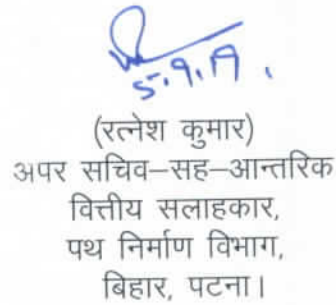 5.9.19.
(रत्नेश कुमार)
अपर सचिव–सह–आन्तरिक
वित्तीय सलाहकार,
पथ निर्माण विभाग,
बिहार, पटना।